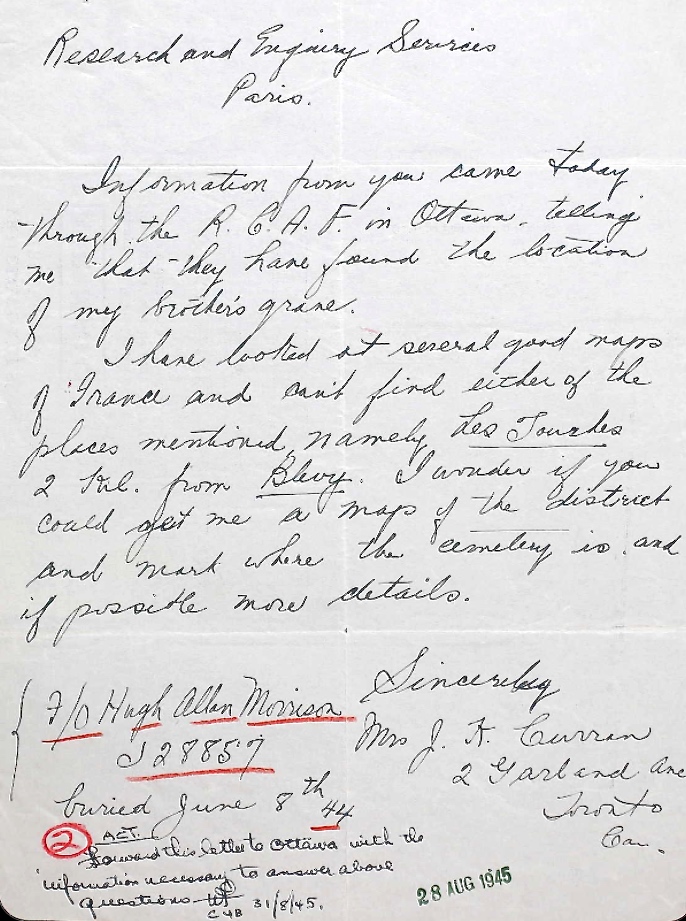 Research and Enquiry Services
Paris.
Information from you came today
through the R.C.A.F. in Ottawa, telling
me that they have found the location
of my brother's grave.
I have looked at several good maps
of France and can't find either of the
places mentioned, namely Les Tourdes
2 Kil. from Blevy. I wonder if you
could get me a map of the district
and mark where the cemetery is and
if possible more details.
Sincerely
Mrs J. H. Curran
2 Garland Ave
Toronto
Can.
F/O Hugh Allan Morrison
J28857
buried June 8th 44
2 ACT.
Forward this letter to Ottawa with the
information necessary to answer above
questions.
31/8/45.
28 AUG 1945